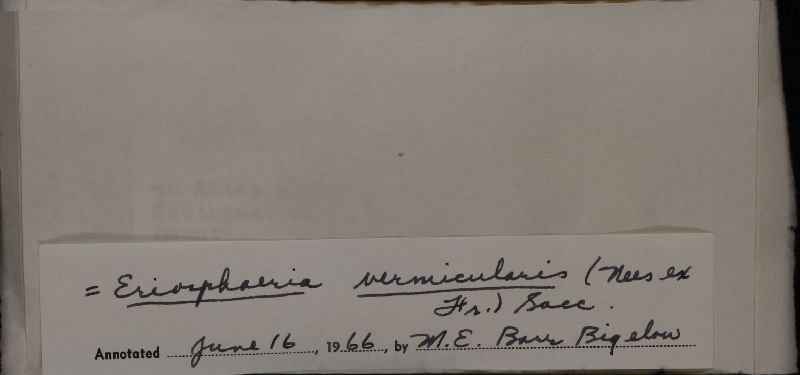 = Eriosphaeria vermicularis (Nees ex
Fr.) Sacc.
Annotated June 16, 1966, by M.E. Barr Bigelow